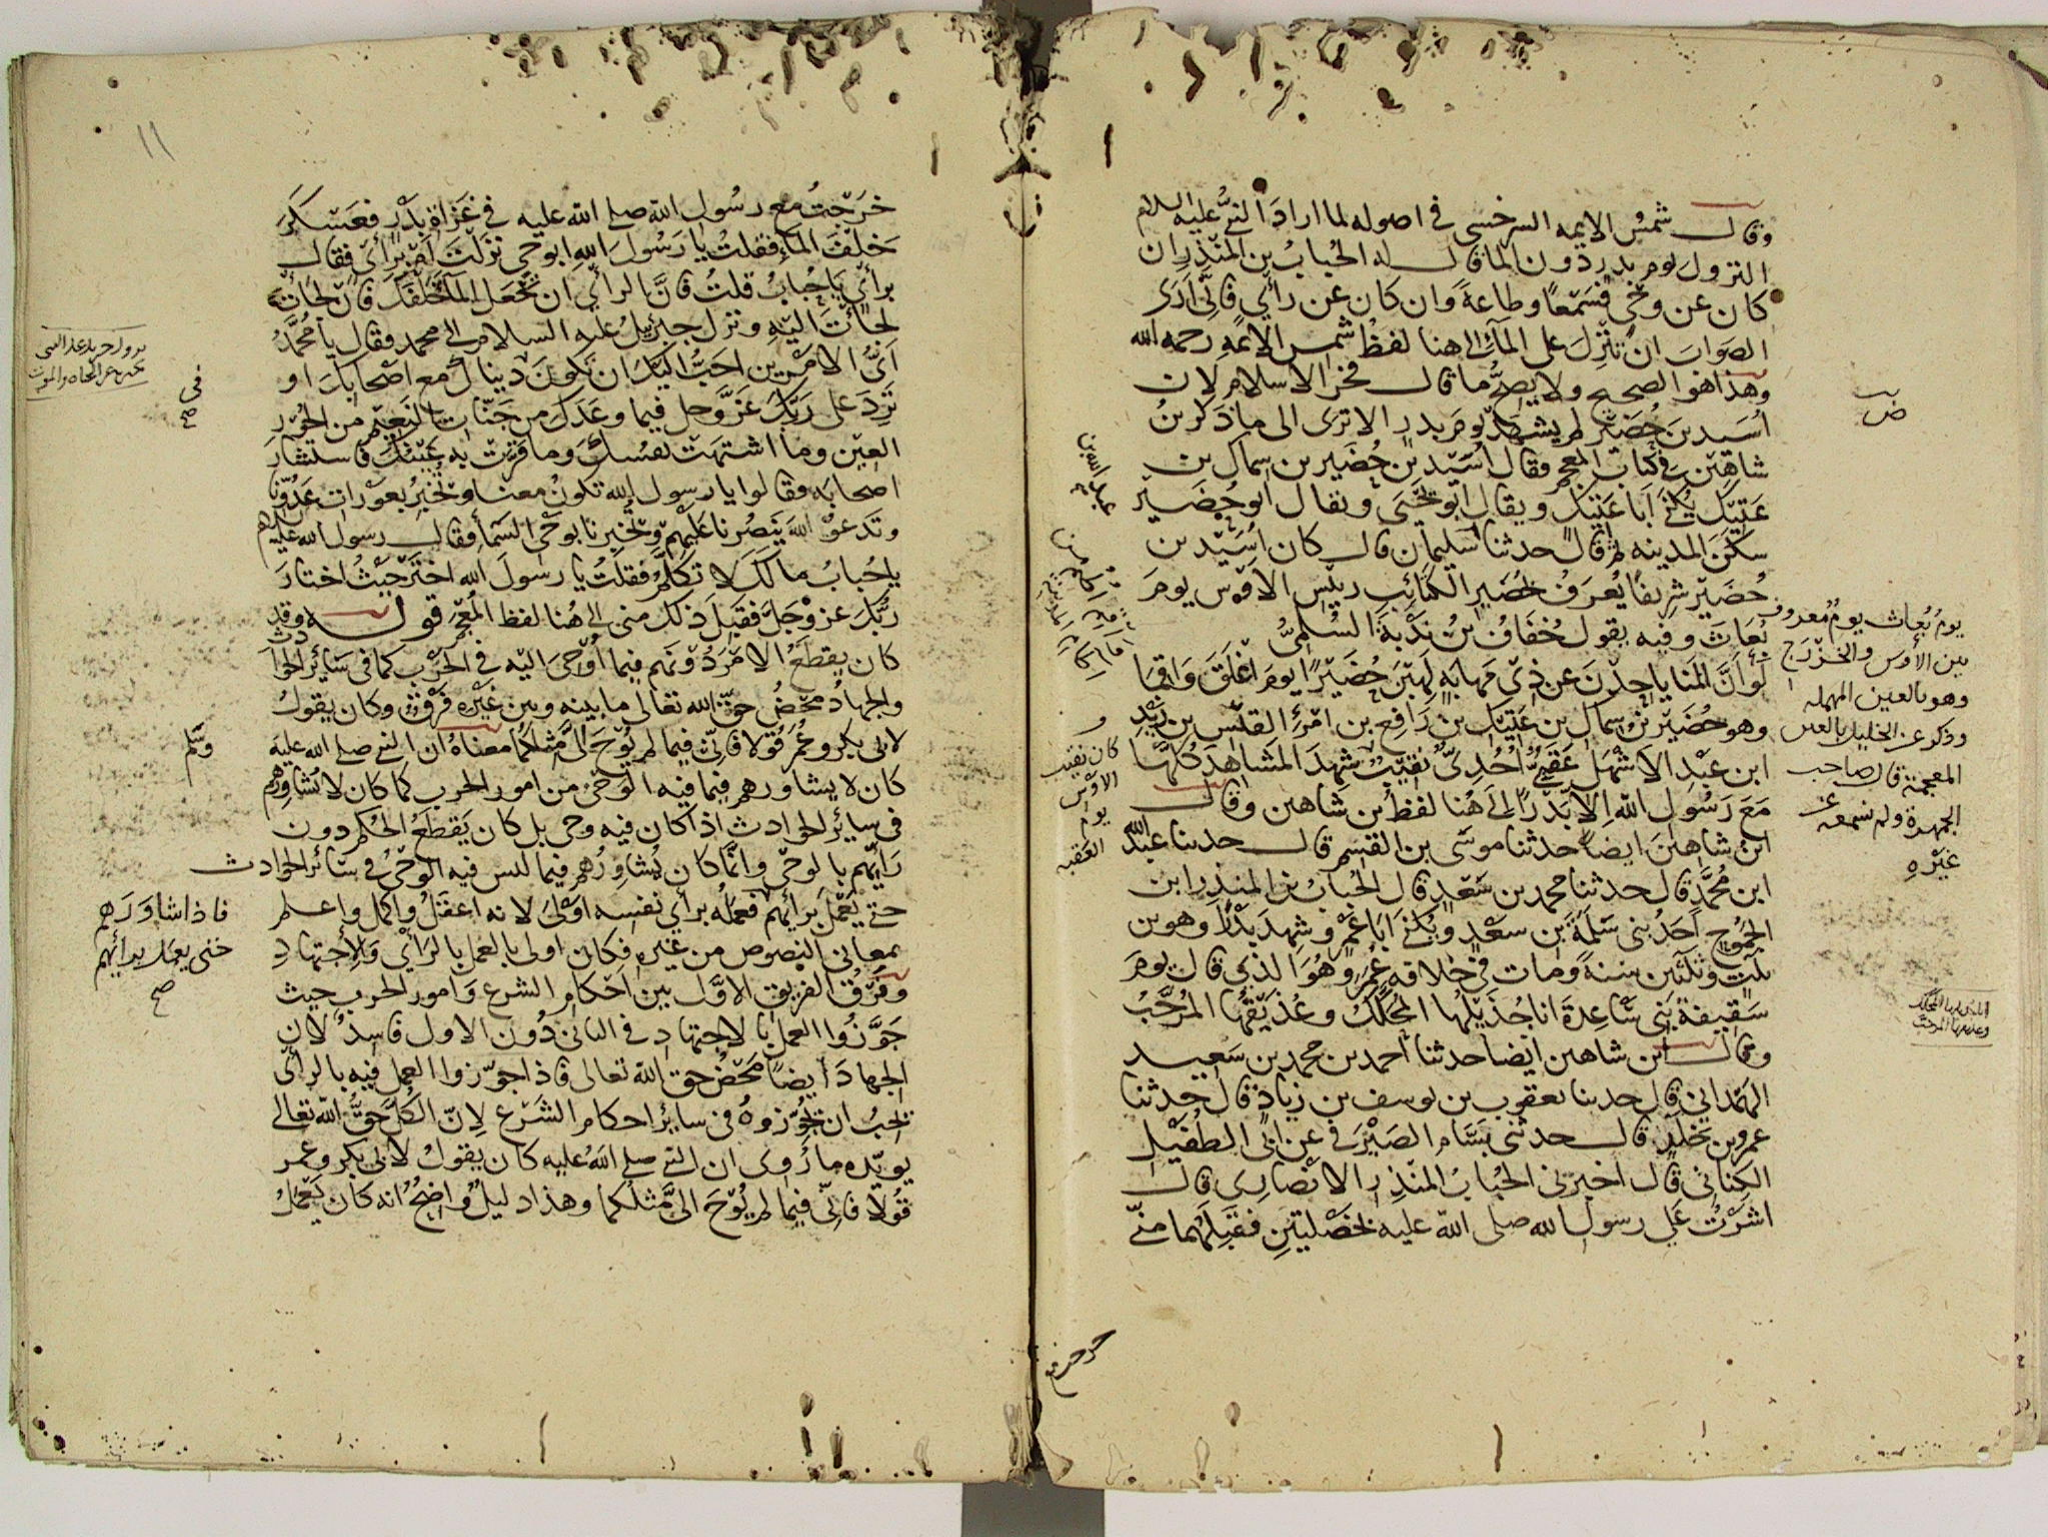 وقال شمس الايمه السرخسي في اصوله لما اراد النبي عليه السلام
النزول يوم بدر دون الما قال له الحباب بن المنذر ان
كان عن وحي فسمعًا وطاعةً وان كان عن رأي فانّي ارى
الصواب ان تنزل على المآء الى هنا لفظ شمس الائمه رحمه الله
وهذا هو الصحيح ولا يصحّ ما قال فخر الاسلام لان
اُسَيد بن حُضَيْر لم يشهد يوم بدر الا ترى الى ما ذكر بنُ
شاهين في كتاب المعجم وقال اُسَيْد بن حُضَير بن سمال بن
عَتِيْك يُكْنَى اَبا عَتِيْك ويقال ابو يحيى ويقال ابو حُضَير
سكن المدينه ثم قال حدثنا سليمان قال كان اُسَيْد بن
حُضَيْر شريفًا يُعرَفُ بحُضَير الكتائب رئيس الاوس يوم
بُعَاث وفيه يقول خُفَافُ بنُ نَدْبَةَ السُّلَميُّ
لَوْ اَنَّ المَنَايا حِدْنَ عن ذي مَهابةٍ لَهِبْنَ حُضَيْرًا يوم اَغْلَقَ وَاقِما
وهو حُضَيْر بن سمال بن عَتِيْك بن رَافِع بن امْرِئ القَيْس بن زيْد
ابن عبْد الاشْهَل عَقَبيٌّ اُحُديٌّ نقيبٌ شهِدَ المشاهِدَ كُلَّهَا
مَعَ رَسُول اللهِ الّا بَدْرًا الى هُنا لفظ بن شاهين وقال
ابن شاهين ايضًا حدثنا موسَى بن القسِم قال حدثنا عبد الله
ابن مُحمَّد قال حدثنا محمد بن سَعْدٍ قال الحُبابُ بن المنذِر ابن
الجَمُوح اَحَدُ بني سَلَمَةَ بن سعْدٍ ويُكنَى اَبا عَمْرٍ وشهِدَ بَدْرًا وهو بن
ثلثٍ وثلثين سنةً ومات في خلافة عُمَر وهُوَ الذي قال يوم
سَقِيفَةِ بَني سَاعِدةَ انا جُذَيْلُهَا المُحَكَّكُ وعُذَيْقُهَا المُرَجَّبُ
وقال ابن شاهين ايضًا حدثنا احمد بن محمد بن سَعِيد
الهَمْداني قال حدثنا يعقوب بن يوسف بن زياد قال حدثنا
عمرو بن مخلد قال حدثني بسّام الصَيْرَفي عن ابي الطُفَيْل
الكِناني قال اخبرني الحُبابُ المنْذِر الانصاري قال
اشرْتُ على رسول الله صلى الله عليه بخَصْلتينِ فقَبِلَهُما منّي
يومُ بُعاث يومٌ معروف
بين الأوس والخزرج
وهو بالعين المهمله
وذكر عن الخليل بالغين
المعجمة قال صاحب
الجمهرة ولم نسمعه عن
غيره
كان نقيب
الاوس
يوم
العقبه
١١
خَرجْتُ مع رسُول الله صلى الله عليه في غَزاة بَدْرٍ فعَسْكَرَ
خَلْفَ المَآءِ فقلتُ يا رَسُول اللهِ ابوحيٍ نزلْتَ اَمْ برَأيٍ فقال
برأيٍ يَا حُبابُ قلتُ فانَّ الرأيَ ان تجْعَلَ المآءَ خلفَكَ فان لجأتَ
لجأتَ اليْهِ ونزل جبرئيلُ عليه السلام الى محمد فقال يا مُحمَّدُ
اَيُّ الامْرَين احبُّ اليكَ ان تكونَ دنياكَ مع اصْحابِكَ او
تَرِدَ على ربّكَ عَزَّ وجل فيما وعَدَكَ من جَنّاتِ النعيْم من الحُوْر
العِيْن وما اشتهَتْ نفسُكَ وما قرّتْ به عَيْنُكَ فاستشارَ
اصحابَه فقالوا يا رسول الله تكونُ معنا وتخبِرُ بعوْراتِ عدُوّنا
وتَدعوْ اللهَ ينصُرُنا عليهِمْ وتخبِرنا بوحْي السّمآءِ فقال رسول الله عليه السلم
يا حُبابُ مالَكَ لا تكلّمُ فقلتُ يا رسُولَ الله اختَرْ حيثُ اختارَ
ربُّكَ عز وجلَّ فقَبِلَ ذلك منى الى هُنا لفظ المُعْجَم قوله وقد
كان يقطَعُ الامْرَ دُوْنهم فيما اُوْحىَ اليْه في الحَرْب كما في سَائِر الحوادث
والجهادُ محْضُ حقِّ الله تعالى ما بينه وبين غيْره فَرْقٌ وكان يقولُ
لابي بكر وعُمَر قُوْلا فانّي فيما لم يُوْحَ اليَّ مثلكُما معناهُ ان النبي صلى الله عليه
كان لا يشاورهم فيما فيه الوحْيُ من امور الحرب كما كان لا يُشاوِرُهم
في سائر الحوادث اذا كان فيه وحي بل كان يقطعُ الحُكْم دون
رَايِهِم بالوحْي وانَّما كان يُشاوِرُهم فيما ليس فيه الوَحْيُ في سائر الحوادث
حتى يَعْمَلَ برأيهم فعمَلُه برأي نفسِه اَوْلىَ لانه اعقَلُ واكمل واعلم
بمعاني النصوص من غيرهِ فكان اولى بالعمل بالرَأيِ وَالاِجْتهادِ
وفَرْقُ الفريق الاوَّلِ بين اَحْكام الشرع وَامور الحرب حيث
جَوَّزُوا العمل بالاجتهاد في الثاني دُون الاول فاسِدٌ لان
الجهادَ ايضًا محْضُ حق الله تعالى فاذا جوّزوا العمل فيه بالرأيِ
يجبُ ان يجُوّزوهُ في سائر احكام الشَرْع لانّ الكُلَّ حقُّ الله تعالى
يويّده ما رُوى ان النبي صلى اللهُ عليه كان يقولُ لابي بكر وعمر
قُوْلا فانّي فيما لم يُوْحَ اليَّ مثلُكما وهذا دليلٌ واضحٌ انه كان يَعْمَلُ
في
صح
وسلم
فاذا شاورهم
حتى يعمل برأيهم
صح